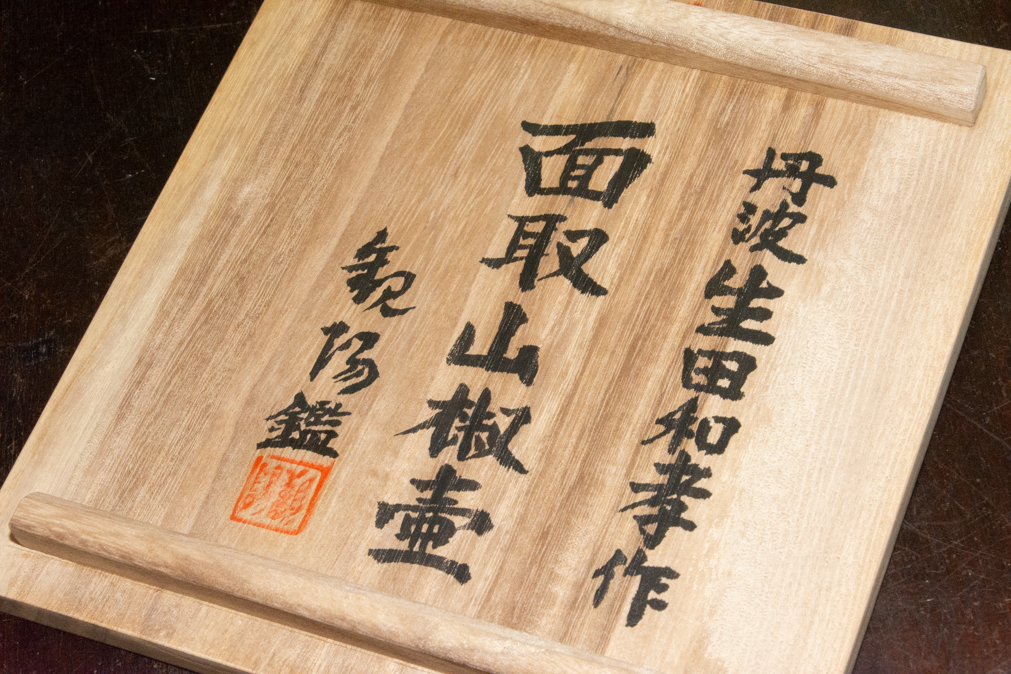 丹波生田和孝作
面取山椒壷
観陽鑑